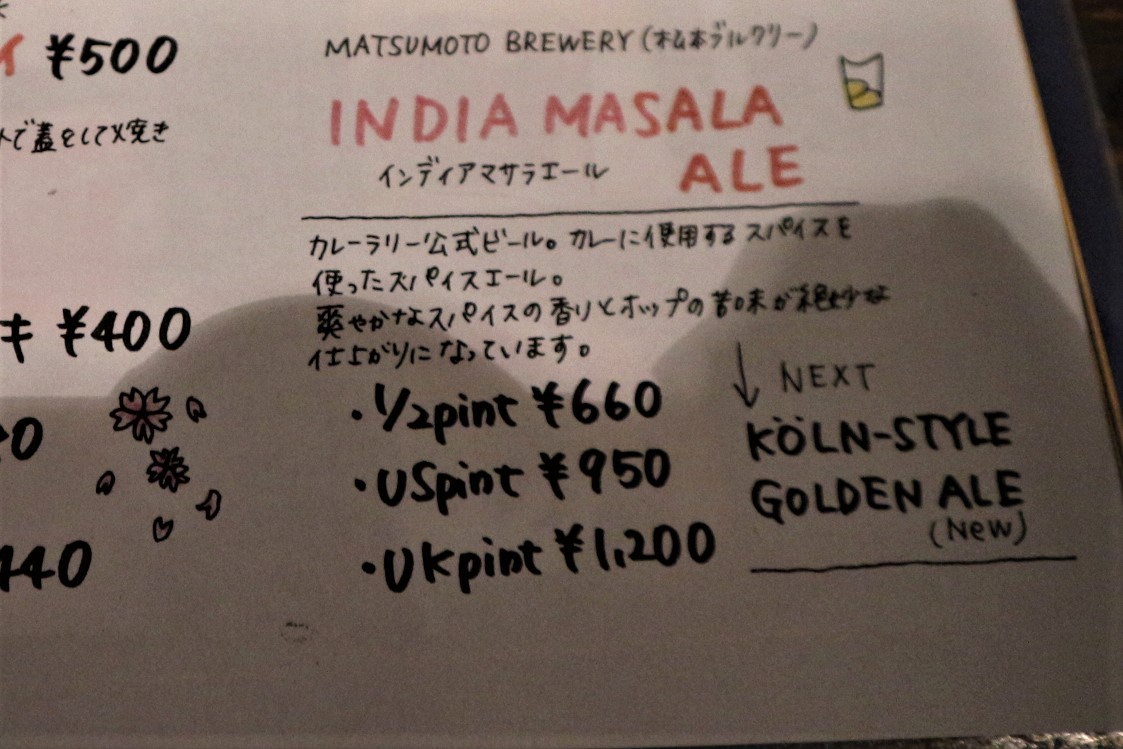 ¥500
で蓋をして焼き
キ ¥400
0
440
MATSUMOTO BREWERY (松本ブルワリー)
INDIA MASALA
インディアマサラエール ALE
カレーラリー公式ビール。カレーに使用するスパイスを
使ったスパイスエール。
爽やかなスパイスの香りとホップの苦味が絶妙な
仕上がりになっています。
・1/2pint ¥660
・USpint ¥950
・UKpint ¥1,200
↓ NEXT
KÖLN-STYLE
GOLDEN ALE
(New)